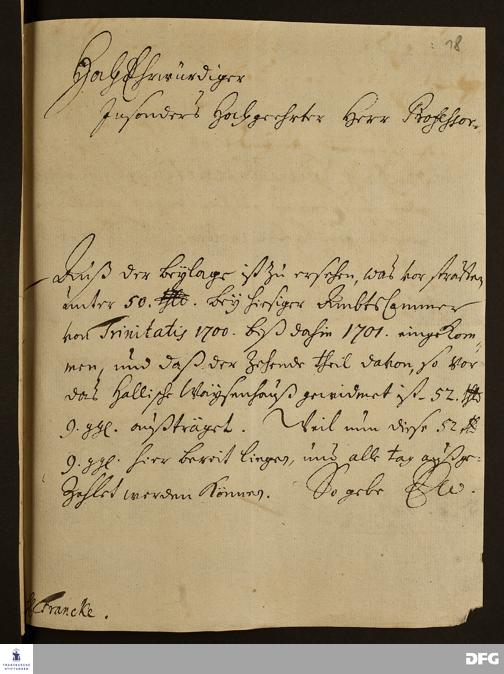 18
HochEhrwürdiger
Insonders Hochgeehrter Herr Professor.
Auß der beÿlage ist zu ersehen, was vor straffen
unter 50. thlr. beÿ hiesiger AmbtsCammer
von Trinitatis 1700. biß dahin 1701. eingekom-
men, und daß der Zehende theil davon, so vor
das Hallische Waÿsenhauß gewidmet ist 52. thlr
9. ggl. außträget. Weil nun diese 52 thlr
9. ggl. hier bereit liegen, und alle tag außge-
Zahlet werden können. So gebe Ew.
Francke.
FRANCKESCHE
STIFTUNGEN
DFG